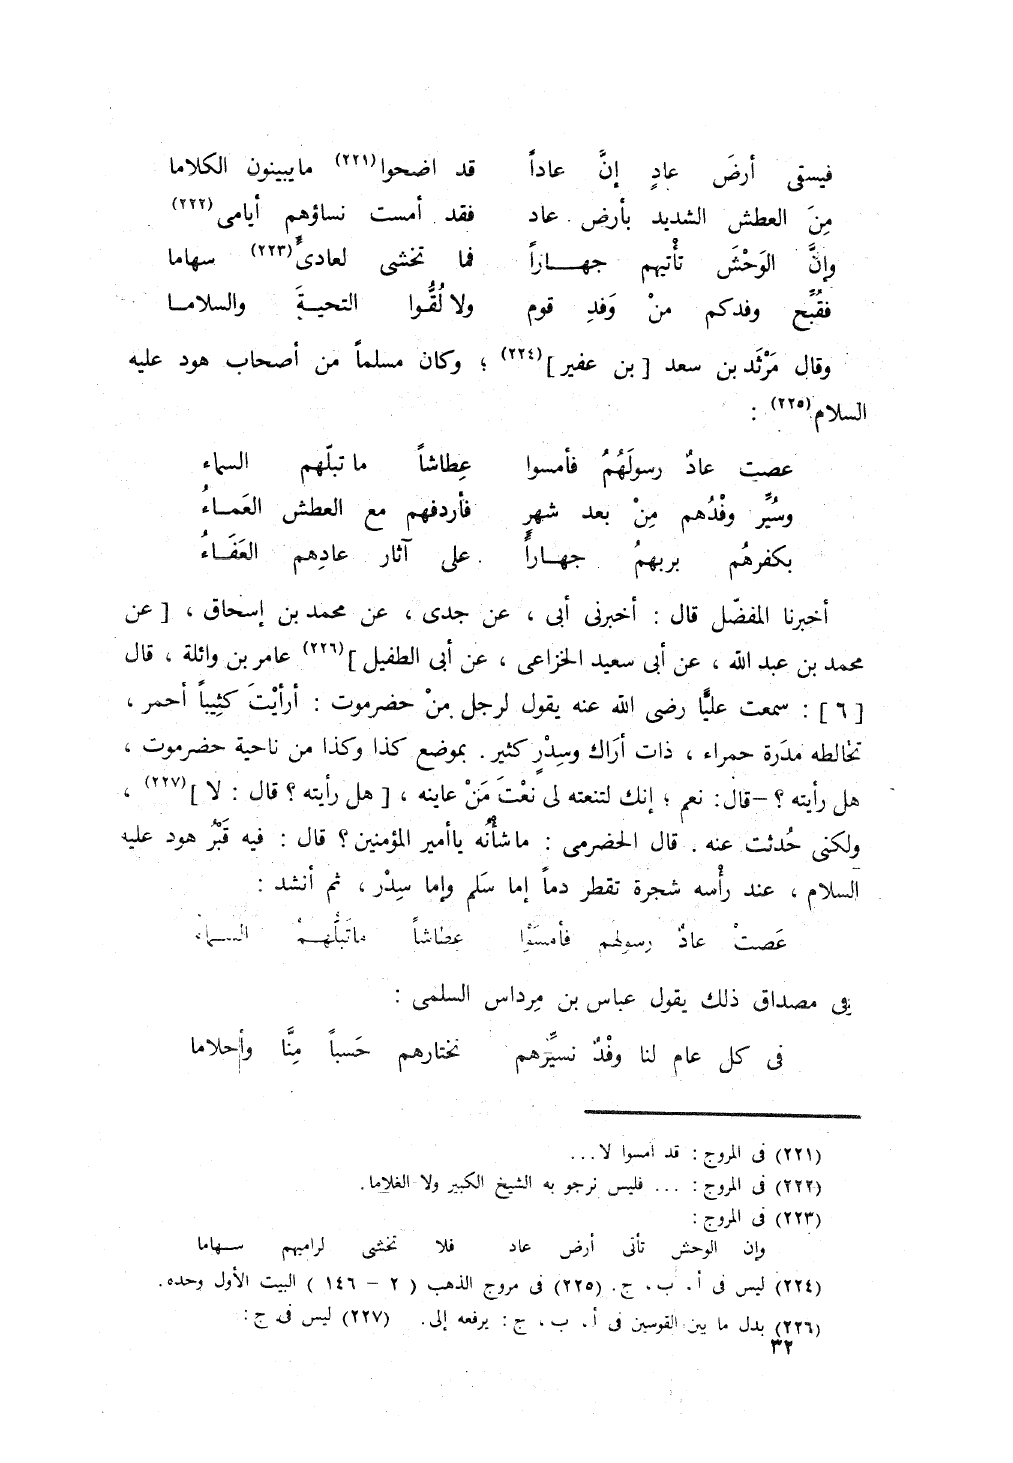 فيسقى أرضَ عادٍ إنَّ عاداً قد اضحوا(٢٢١) مايبينون الكلاما
مِنَ العطش الشديد بأرض عاد فقد أمست نساؤهم أيامى(٢٢٢)
وإنَّ الوَحْشَ تأْتيهم جهـــاراً فما تخشى لعادىٍّ(٢٢٣) سهاما
فقُبِّح وفدكم منْ وَفدِ قوم ولا لُقُّوا التحيةَ والسلامـا
وقال مَرْثَد بن سعد [ بن عفير ](٢٢٤) ؛ وكان مسلماً من أصحاب هود عليه
السلام(٢٢٥) :
عصت عادٌ رسولَهُمُ فأمسوا عِطاشاً ما تبلّهم السماء
وسُيِّر وفْدُهم مِنْ بعد شهرٍ فأردفهم مع العطش العَمـاءُ
بكفرهُم بربهمُ جهـاراً على آثار عادِهم العَفَـاءُ
أخبرنا المفضّل قال : أخبرنى أبى ، عن جدى ، عن محمد بن إسحاق ، [ عن
محمد بن عبد الله ، عن أبى سعيد الخزاعى ، عن أبى الطفيل ](٢٢٦) عامر بن واثلة ، قال
[ ٦ ] : سمعت عليًّا رضى الله عنه يقول لرجل منْ حضرموت : أرأيْتَ كثِيباً أحمر ،
تخالطه مدَرة حمراء ، ذات أرَاك وسِدْرٍ كثير . بموضع كذا وكذا من ناحية حضرموت ،
هل رأيته ؟ – قال : نعم ؛ إنك لتنعته لى نعْتَ مَنْ عاينه ، [ هل رأيته ؟ قال : لا ](٢٢٧) ،
ولكنى حُدثت عنه . قال الحضرمى : ما شأنُه ياأمير المؤمنين ؟ قال : فيه قَبْرُ هود عليه
السلام ، عند رأْسه شجرة تقطر دماً إما سَلم وإما سِدْر ، ثم أنشد :
عَصتْ عادٌ رسولهم فأمسَوْا عطاشاً ماتَبُلُّهـمْ السـماءُ
فى مصداق ذلك يقول عباس بن مِرداس السلمى :
فى كل عام لنا وفْدٌ نسيِّرهم نختارهم حَسباً مِنَّا وأحلاما
(٢٢١) فى المروج : قد أمسوا لا . . .
(٢٢٢) فى المروج : . . . فليس نرجو به الشيخ الكبير ولا الغلاما .
(٢٢٣) فى المروج :
وإن الوحش تأتى أرض عاد فلا تخشى لراميهم سـهاما
(٢٢٤) ليس فى أ . ب . ج . (٢٢٥) فى مروج الذهب ( ٢ – ١٤٦ ) البيت الأول وحده .
(٢٢٦) بدل ما بين القوسين فى أ . ب . ج : يرفعه إلى . (٢٢٧) ليس فى ج :
٣٢